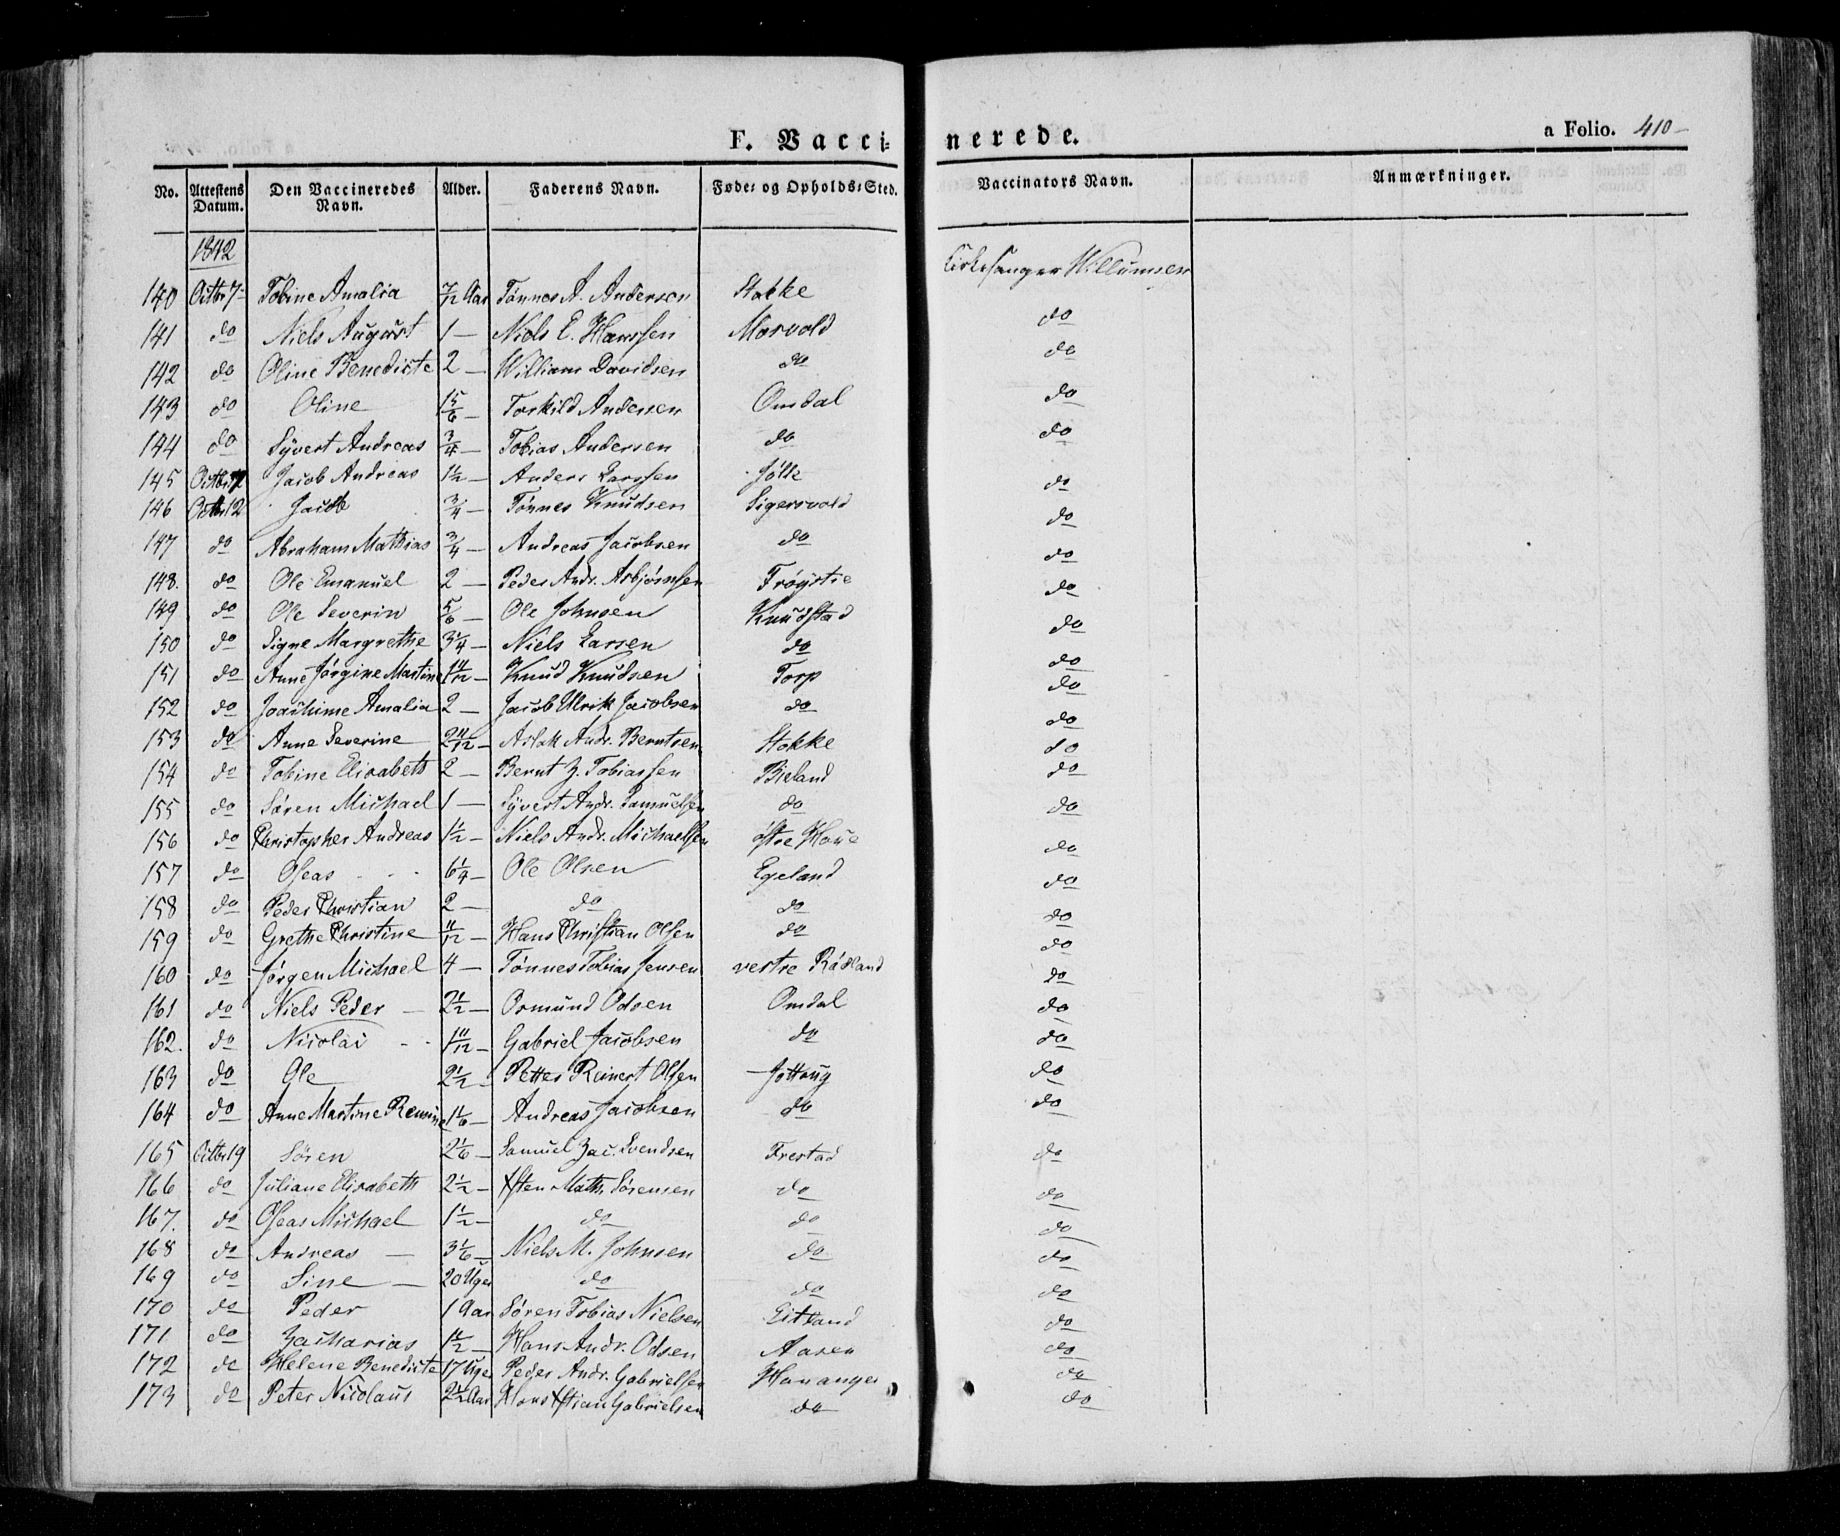 F. Vacci-nerede. a Folio. 410-
No. Attestens Datum. Den Vaccineredes Navn. Alder. Faderens Navn. Føde- og Opholds-Sted. Vaccinators Navn. Anmærkninger.
1842
140 Octbr 7 Tobine Amalia 7/12 Aar Tønnes A. Andersen Stokke Kirkesanger Willumsen
141 do Niels August 1 — Niels E. Hanssen Morvold do
142 do Oline Benedicte 2 — William Davidsen do do
143 do Oline 1 5/6 — Torkild Andersen Omdal do
144 do Syvert Andreas 3/4 — Tobias Andersen do do
145 Octbr Jacob Andreas 1 1/2 — Anders Larssen Jølle do
146 Octbr 12 Jacob 3/4 — Tønnes Knudsen Sigersvold do
147 do Abraham Mathias 3/4 — Andreas Jacobsen do do
148. do Ole Emanuel 2 — Peder Andr. Asbjørnsen Frøystie do
149 do Ole Severin 5/6 — Ole Johnsen Knudstad do
150 do Signe Margrethe 3 1/4 — Niels Larsen do do
151 do Anne Jørgine Martine 1 11/12 — Knud Knudsen Torp do
152 do Joachime Amalia 2 — Jacob Ulrik Jacobsen do do
153 do Anne Severine 2 11/12 — Aslak Andr. Berntsen Stokke do
154 do Tobine Elisabeth 2 — Bernt Z. Tobiassen Bieland do
155 do Søren Michael 1 — Syvert Andr. Samuelsen do do
156 do Christopher Andreas 1 1/2 — Niels Andr. Michaelsen østre Haue do
157 do Oseas 6 1/4 — Ole Olsen Egeland do
158 do Peder Christian 2 — do do do
159 do Grethe Christine 11/12 — Hans Christian Olsen do do
160 do Jørgen Michael 4 — Tønnes Tobias Jensen vestre Rødland do
161 do Niels Peder — 2 1/2 — Osmund Odsen Omdal do
162. do Nicolai 1 11/12 — Gabriel Jacobsen do do
163 do Ole 2 1/2 — Petter Reinert Olsen Jøttoug do
164 do Anne Martine 1 1/6 — Andreas Jacobsen do do
165 Octbr 19 Søren 2 1/6 — Samuel Zac. Svendsen Frestad do
166 do Juliane Elisabeth 2 1/2 — Xsten Math. Sørensen do do
167. do Oseas Michael 1 1/2 — do do do
168 do Andreas — 3 1/6 — Niels M. Johnsen do do
169 do Sine — 20 Uger do do do
170 do Peder 1 Aar Søren Tobias Nielsen Eitland do
171 do Zacharias 1 1/2 — Hans Andr. Odsen Aasen do
172 do Helene Benedicte 17 Uger Peder Andr. Gabrielsen Hananger do
173 do Peter Nicolaus 2 1/2 Aar Hans Xstian Gabrielsen do do